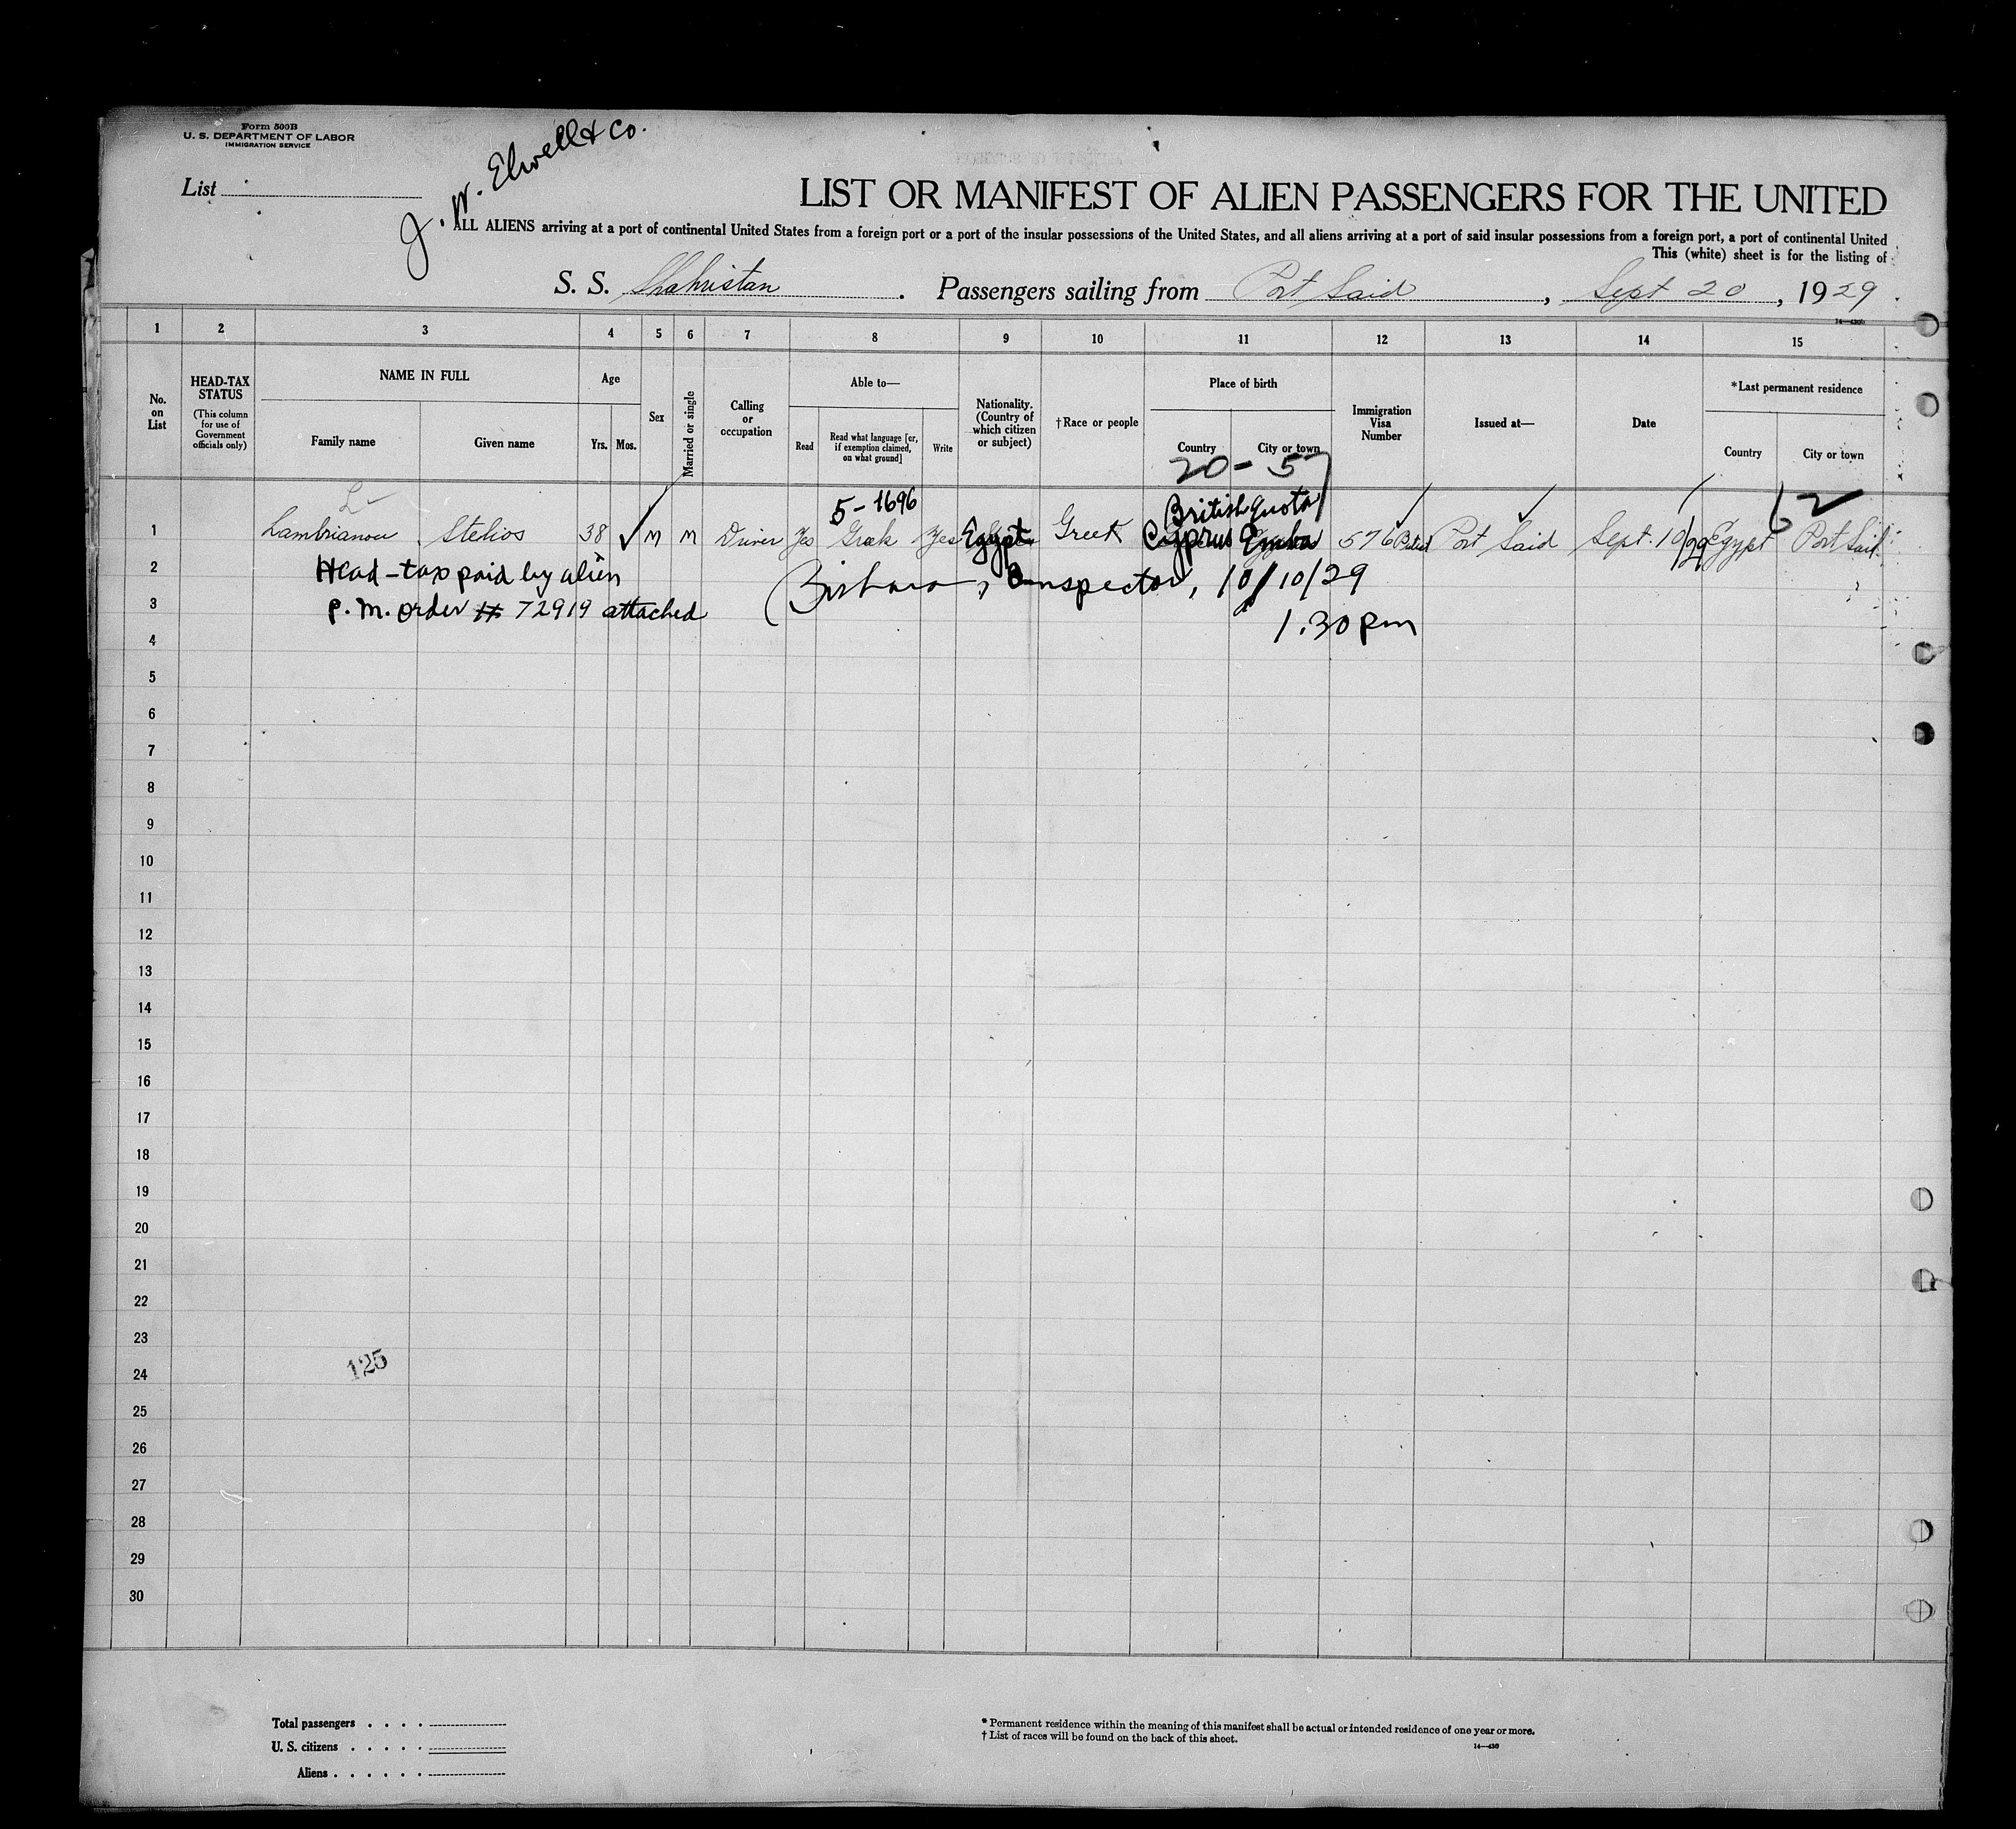 Form 500B
U. S. DEPARTMENT OF LABOR
IMMIGRATION SERVICE
J. W. Elwell & Co.
List
LIST OR MANIFEST OF ALIEN PASSENGERS FOR THE UNITED
ALL ALIENS arriving at a port of continental United States from a foreign port or a port of the insular possessions of the United States, and all aliens arriving at a port of said insular possessions from a foreign port, a port of continental United
This (white) sheet is for the listing of
S. S. Shahristan. Passengers sailing from Port Said, Sept 20, 1929.
14—430b
1 2 3 4 5 6 7 8 9 10 11 12 13 14 15
No. on List
HEAD-TAX STATUS (This column for use of Government officials only)
NAME IN FULL
Family name
Given name
Age
Yrs. Mos.
Sex
Married or single
Calling or occupation
Able to—
Read
Read what language [or, if exemption claimed, on what ground]
Write
Nationality. (Country of which citizen or subject)
†Race or people
Place of birth
Country
City or town
Immigration Visa Number
Issued at—
Date
*Last permanent residence
Country
City or town
20-57
L
5-1696
British Quota
62
1 Lambrianou Stelios 38 M M Driver Yes Greek Yes Egypt Greek Cyprus 576 Port Said Sept. 10/29 Egypt Port Said
2 Head-tax paid by alien
Bishara, Inspector, 10/10/29
3 P. M. order # 72919 attached
1.30 pm
4
5
6
7
8
9
10
11
12
13
14
15
16
17
18
19
20
21
22
23
125
24
25
26
27
28
29
30
Total passengers
U. S. citizens
Aliens
* Permanent residence within the meaning of this manifest shall be actual or intended residence of one year or more.
† List of races will be found on the back of this sheet.
14—430